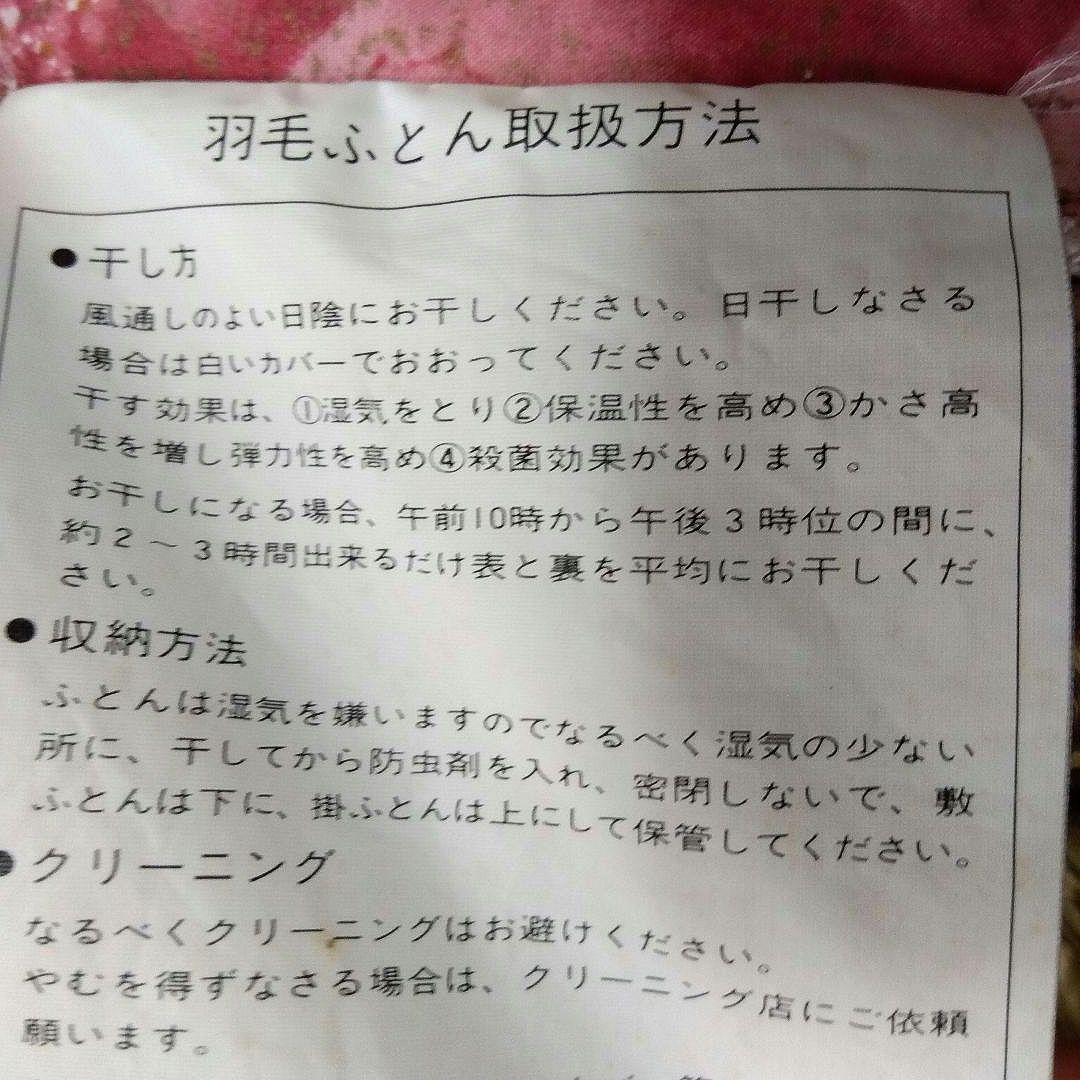 羽毛ふとん取扱方法
●干し方
風通しのよい日陰にお干しください。日干しなさる
場合は白いカバーでおおってください。
干す効果は、①湿気をとり②保温性を高め③かさ高
性を増し弾力性を高め④殺菌効果があります。
お干しになる場合、午前10時から午後3時位の間に、
約2〜3時間出来るだけ表と裏を平均にお干しくだ
さい。
●収納方法
ふとんは湿気を嫌いますのでなるべく湿気の少ない
所に、干してから防虫剤を入れ、密閉しないで、敷
ふとんは下に、掛ふとんは上にして保管してください。
●クリーニング
なるべくクリーニングはお避けください。
やむを得ずなさる場合は、クリーニング店にご依頼
願います。